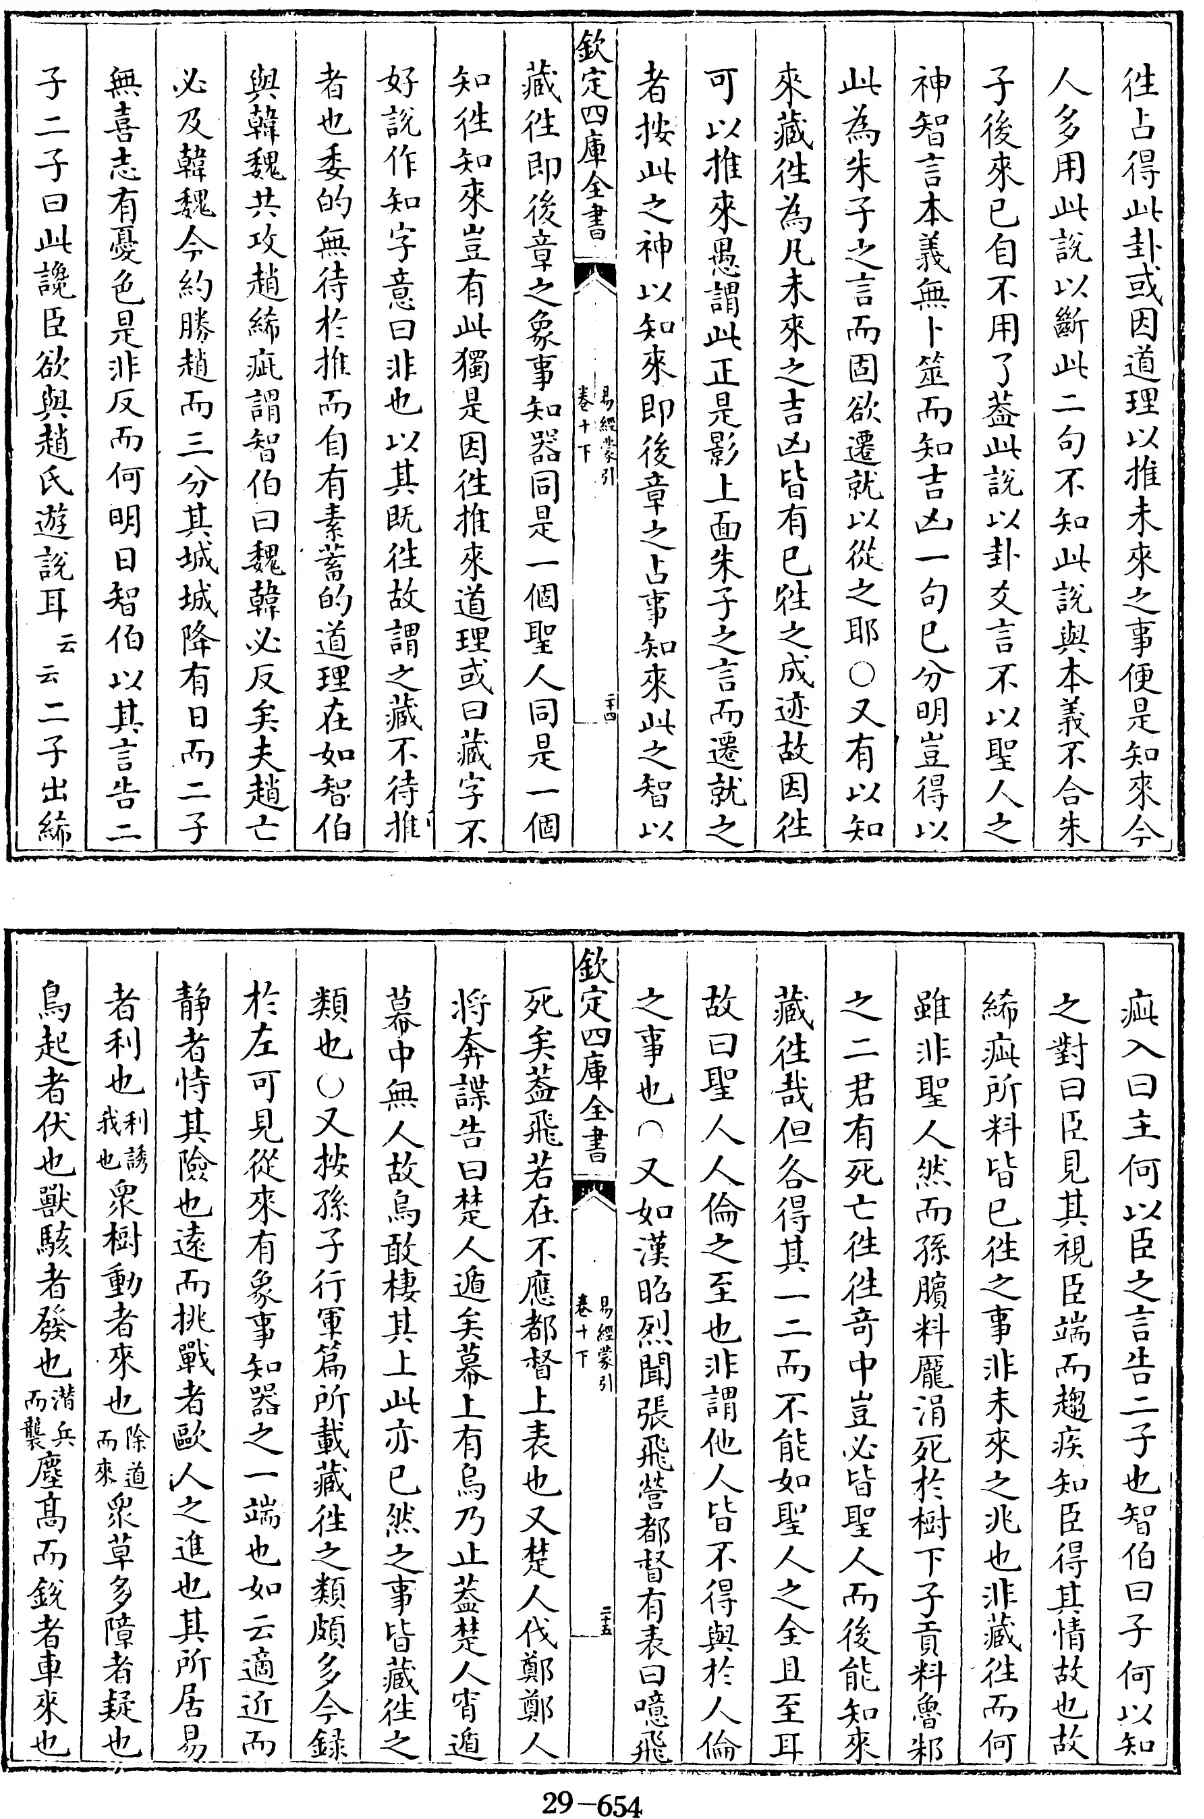 徃占得此卦或因道理以推未來之事便是知來今
人多用此說以斷此二句不知此說與本義不合朱
子後來已自不用了葢此說以卦爻言不以聖人之
神智言本義無卜筮而知吉凶一句已分明豈得以
此為朱子之言而固欲遷就以從之耶○又有以知
來藏徃為凡未來之吉凶皆有已徃之成迹故因徃
可以推來愚謂此正是影上面朱子之言而遷就之
者按此之神以知來即後章之占事知來此之智以
欽定四庫全書
易經蒙引
卷十下
二十四
藏徃即後章之象事知器同是一個聖人同是一個
知徃知來豈有此獨是因徃推來道理或曰藏字不
好説作知字意曰非也以其既徃故謂之藏不待推
者也委的無待於推而自有素蓄的道理在如智伯
與韓魏共攻趙絺疵謂智伯曰魏韓必反矣夫趙亡
必及韓魏今約勝趙而三分其城城降有日而二子
無喜志有憂色是非反而何明日智伯以其言告二
子二子曰此讒臣欲與趙氏遊說耳云云二子出絺
疵入曰主何以臣之言告二子也智伯曰子何以知
之對曰臣見其視臣端而趨疾知臣得其情故也故
絺疵所料皆已徃之事非未來之兆也非藏徃而何
雖非聖人然而孫臏料龐涓死於樹下子貢料魯邾
之二君有死亡徃徃奇中豈必皆聖人而後能知來
藏徃哉但各得其一二而不能如聖人之全且至耳
故曰聖人人倫之至也非謂他人皆不得與於人倫
之事也○又如漢昭烈聞張飛營都督有表曰噫飛
欽定四庫全書
易經蒙引
卷十下
二十五
死矣葢飛若在不應都督上表也又楚人伐鄭鄭人
將奔諜告曰楚人遁矣幕上有烏乃止葢楚人宵遁
幕中無人故烏敢棲其上此亦已然之事皆藏徃之
類也○又按孫子行軍篇所載藏徃之類頗多今録
於左可見從來有象事知器之一端也如云適近而
靜者恃其險也遠而挑戰者歐人之進也其所居易
者利也利誘我也衆樹動者來也除道而來衆草多障者疑也
鳥起者伏也獸駭者發也潛兵而襲塵髙而鋭者車來也
29-654